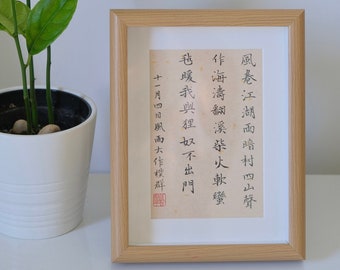 風卷江湖雨暗村四山聲
作海濤翻溪柴火軟蠻
毡暖我與貍奴不出門
十一月四日風雨大作